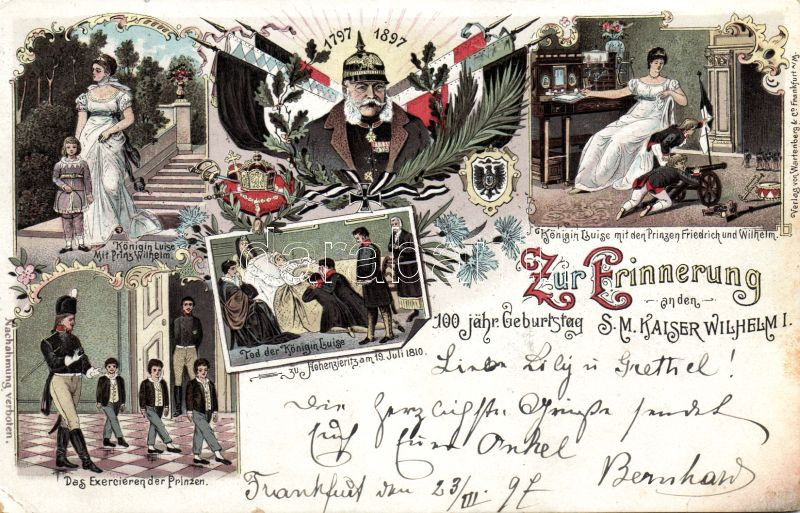 1797 1897
Königin Luise
Mit Prinz Wilhelm.
Königin Luise mit den Prinzen Friedrich und Wilhelm.
Verlag von Wartenberg & Co Frankfurt a/M.
darab
Tod der Königin Luise
zu Hohenzieritz am 19. Juli 1810.
Zur Erinnerung
an den
100 jähr. Geburtstag S. M. KAISER WILHELM I.
Das Exercieren der Prinzen.
Nachahmung verboten.
Liebe Lily u Grethel!
Die herzlichste Grüße sendet
Euch Euer Onkel
Bernhard
Frankfurt den 23/III. 97